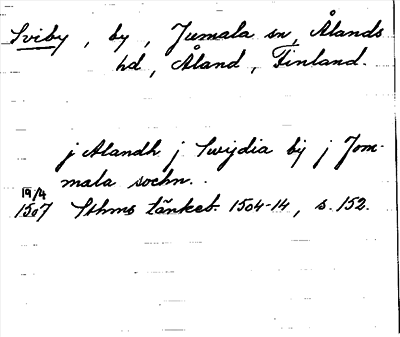 Sviby, by, Jumala sn, Ålands
hd, Åland, Finland.
j Alandh j Swijdia bij j Jom-
mala sochn.
19/4
1507 Sthms tänkeb. 1504-14, s. 152.